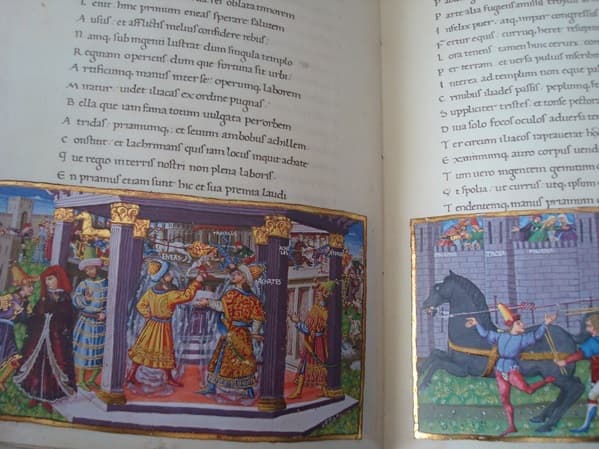 res oblata timorem
L eniit. hic primum eneas sperare salutem
A usus: et afflictis melius confidere rebus:
N anq; sub ingenti lustrat dum singula templo
R eginam operiens: dum que fortuna sit urbi:
A rtificumq; manus inter se: operumq; laborem
M iratur: uidet iliacas ex ordine pugnas:
B ella que iam fama totum uulgata per orbem
A tridas: priamumq; et seuum ambobus achillem:
C onstitit: et lachrimans quis iam locus inquit achate
Q ue regio in terris nostri non plena laboris:
E n priamus etiam sunt hic et sua premia laudi
ENEAS
ACHATES
P arte alia fugiens amissis
I nfelix puer: atq; impar congressus
F ertur equis: curruq; heret resupi
L ora tenens tamen: huic ceruix
P er terram: et uersa puluis inscribi
I nterea ad templum non eque pa
C rinibus iliades passis: peplumq;
S uppliciter tristes: et tonse pector
D iua solo fixos oculos aduersa te
T er circum iliacos raptauerat he
E xanimumq; auro corpus uend
T um uero ingentem gemitum
V t spolia: ut currus: utq; ipsum
T endentemq; manus priamum